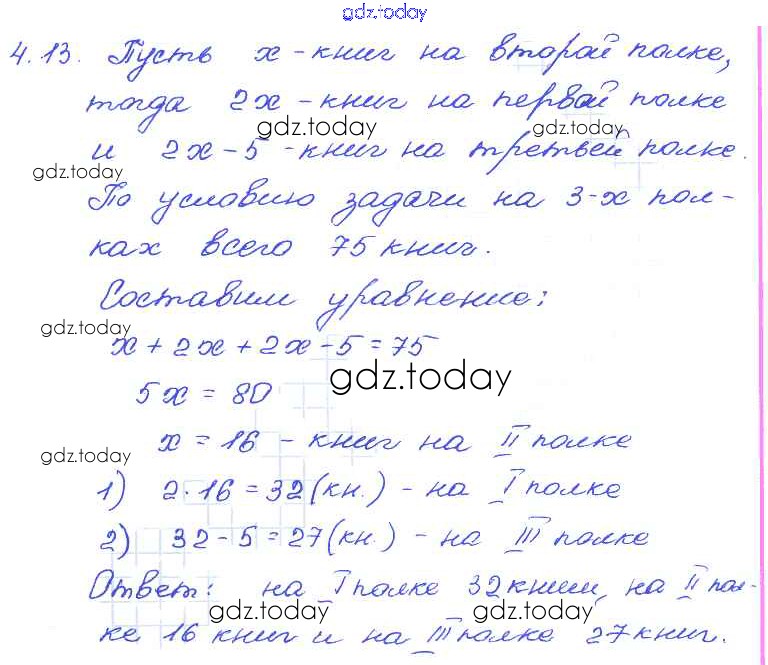 gdz.today
4.13. Пусть x - книг на второй полке,
тогда 2x - книг на первой полке
gdz.today gdz.today
и 2x - 5 - книг на третьей полке.
gdz.today
По условию задачи на 3-х пол-
ках всего 75 книг.
Составим уравнение:
gdz.today
x + 2x + 2x - 5 = 75
gdz.today
5x = 80
x = 16 - книг на II полке
gdz.today
1) 2·16 = 32 (кн.) - на I полке
2) 32 - 5 = 27 (кн.) - на III полке
Ответ: на I полке 32 книги, на II пол-
gdz.today gdz.today
ке 16 книг и на III полке 27 книг.